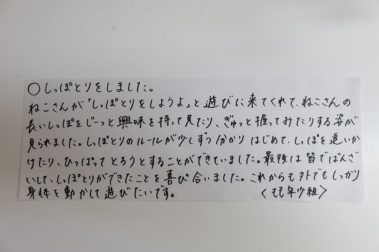 ○しっぽとりをしました。
ねこさんが「しっぽとりをしようよ」と遊びに来てくれて、ねこさんの
長いしっぽをじーっと興味を持って見たり、ぎゅっと握ってみたりする姿が
見られました。しっぽとりのルールが少しずつ分かりはじめて、しっぽを追いか
けたり、ひっぱってとろうとすることができていました。最後は皆でばんざ
いして、しっぽとりができたことを喜び合いました。これからも外でもしっかり
身体を動かして遊びたいです。 〈もも年少組〉